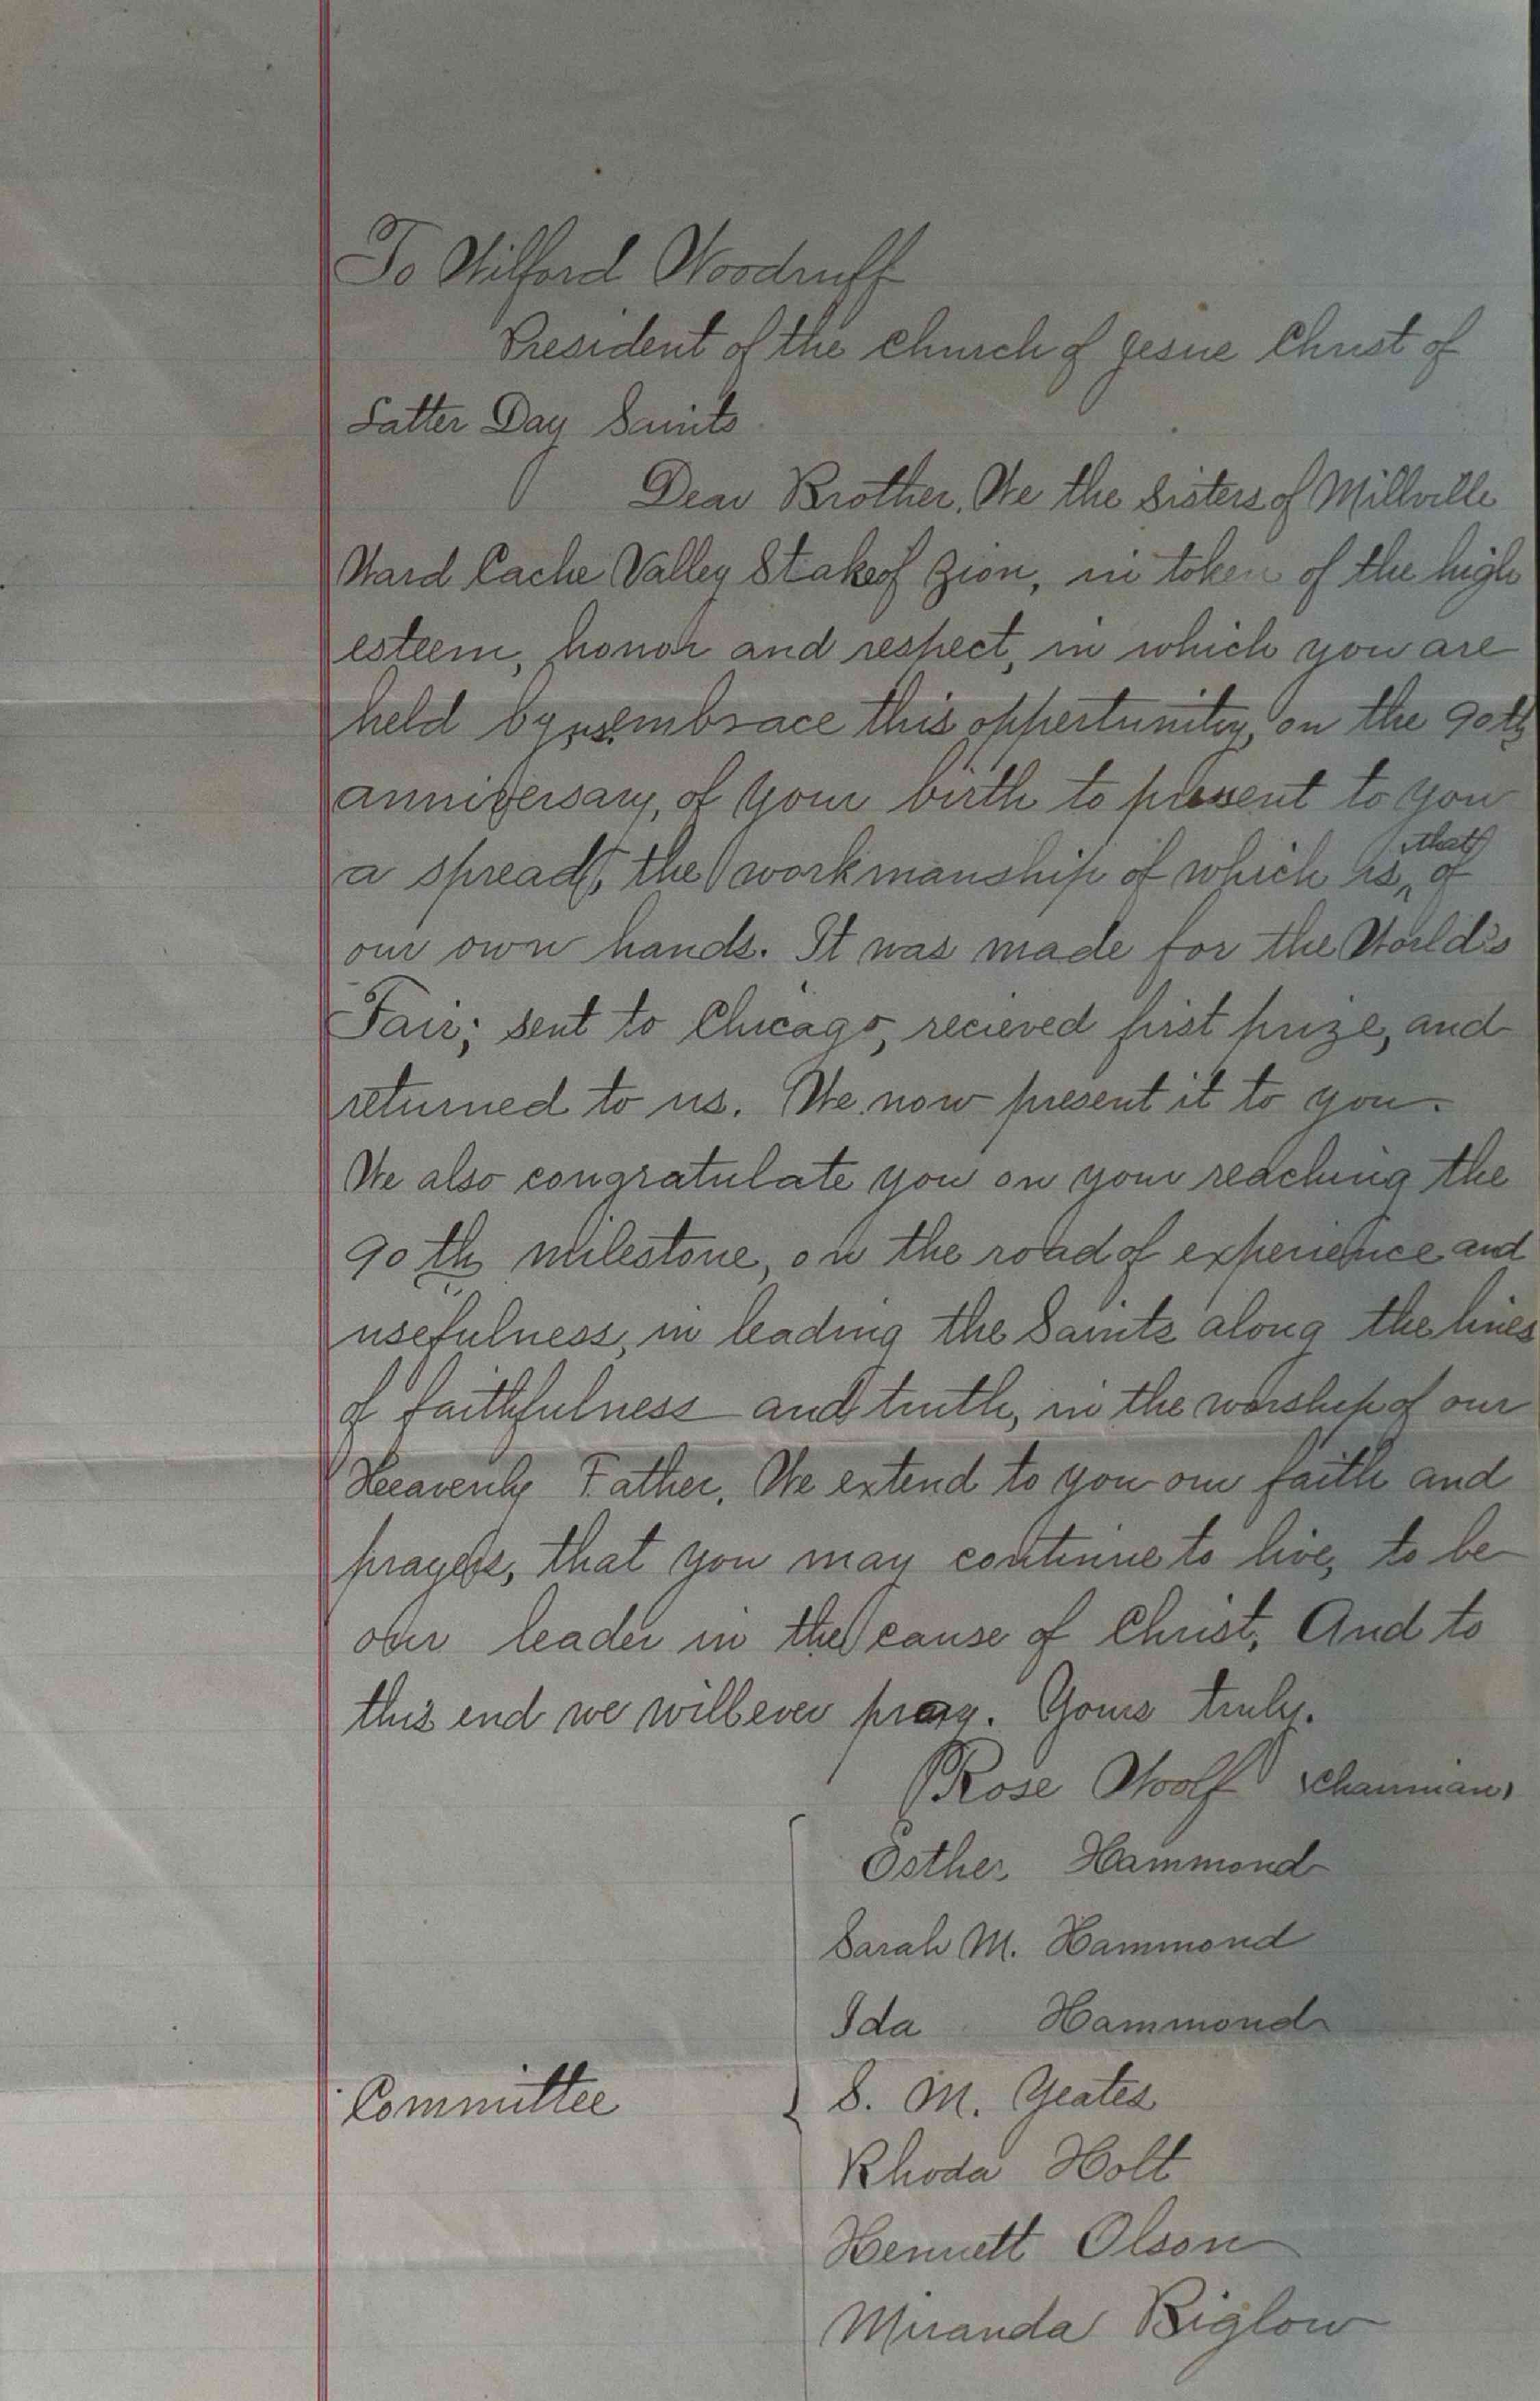 To Wilford Woodruff
President of the Church of Jesue Christ of
Latter Day Saints
Dear Brother, We the Sisters of Millville
Ward Cache Valley Stake of Zion, in token of the high
esteem, honor and respect, in which you are
held by us, embrace this oppertunity, on the 90th
anniversary, of your birth to present to you
a spread, the workmanship of which is ^that of
our own hands. It was made for the World's
Fair; sent to Chicago, recieved first prize, and
returned to us. We now present it to you.
We also congratulate you on your reaching the
90th milestone, on the road of experience and
usefulness, in leading the Saints along the lines
of faithfulness and truth, in the worship of our
Heavenly Father. We extend to you our faith and
prayers, that you may continue to live, to be
our leader in the cause of Christ, And to
this end we will ever pray. Yours truly.
Rose Woolf (Chairman)
Esther Hammond
Sarah M. Hammond
Ida Hammond
Committee { S. M. Yeates
Rhoda Holt
Henriett Olson
Miranda Biglow